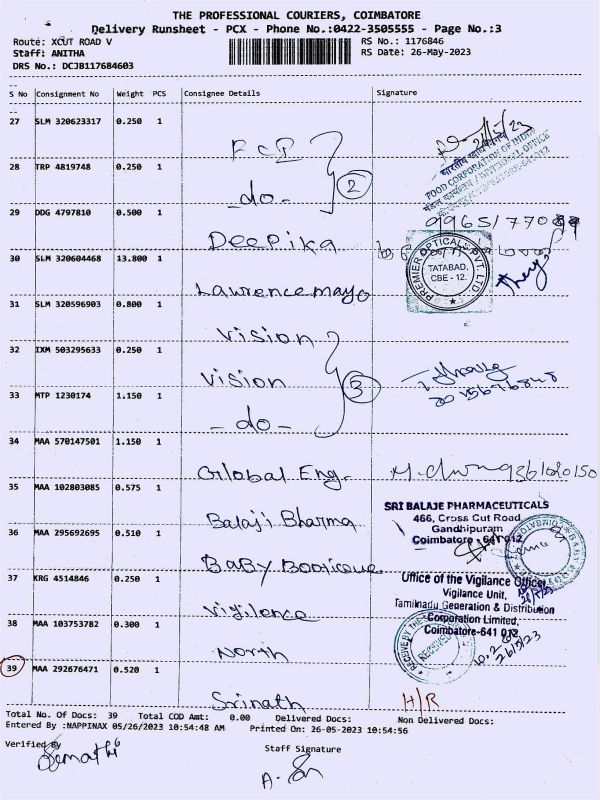 THE PROFESSIONAL COURIERS, COIMBATORE
Delivery Runsheet - PCX - Phone No.:0422-3505555 - Page No.:3
Route: XCUT ROAD V
RS No.: 1176846
Staff: ANITHA
RS Date: 26-May-2023
DRS No.: DCJB117684603
S No Consignment No Weight PCS Consignee Details Signature
27 SLM 320623317 0.250 1
FCI
28 TRP 4819748 0.250 1
-do- 2
भारतीय खाद्य निगम
FOOD CORPORATION OF INDIA
29 DDG 4797810 0.500 1
Deepika
30 SLM 320604468 13.800 1
Lawrencemayo
PREMIER OPTICALS PVT. LTD.
TATABAD,
CBE - 12.
31 SLM 320596903 0.800 1
Vision
32 IXM 503295633 0.250 1
Vision 3
33 MTP 1230174 1.150 1
-do-
34 MAA 570147501 1.150 1
Global Eng.
35 MAA 102803085 0.575 1
Balaji Bharma
SRI BALAJE PHARMACEUTICALS
466, Cross Cut Road
Gandhipuram
Coimbatore - 641 012
36 MAA 295692695 0.510 1
BaBy Booticoue
37 KRG 4514846 0.250 1
Vigilence
Office of the Vigilance Officer
Vigilance Unit,
Tamilnadu Generation & Distribution
Corporation Limited,
Coimbatore-641 012
38 MAA 103753782 0.300 1
North
RECEIVED
26/5/23
39 MAA 292676471 0.520 1
Srinath H/R
Total No. Of Docs: 39 Total COD Amt: 0.00 Delivered Docs: Non Delivered Docs:
Entered By :NAPPINAX 05/26/2023 10:54:48 AM Printed On: 26-05-2023 10:54:56
Verified By
Staff Signature